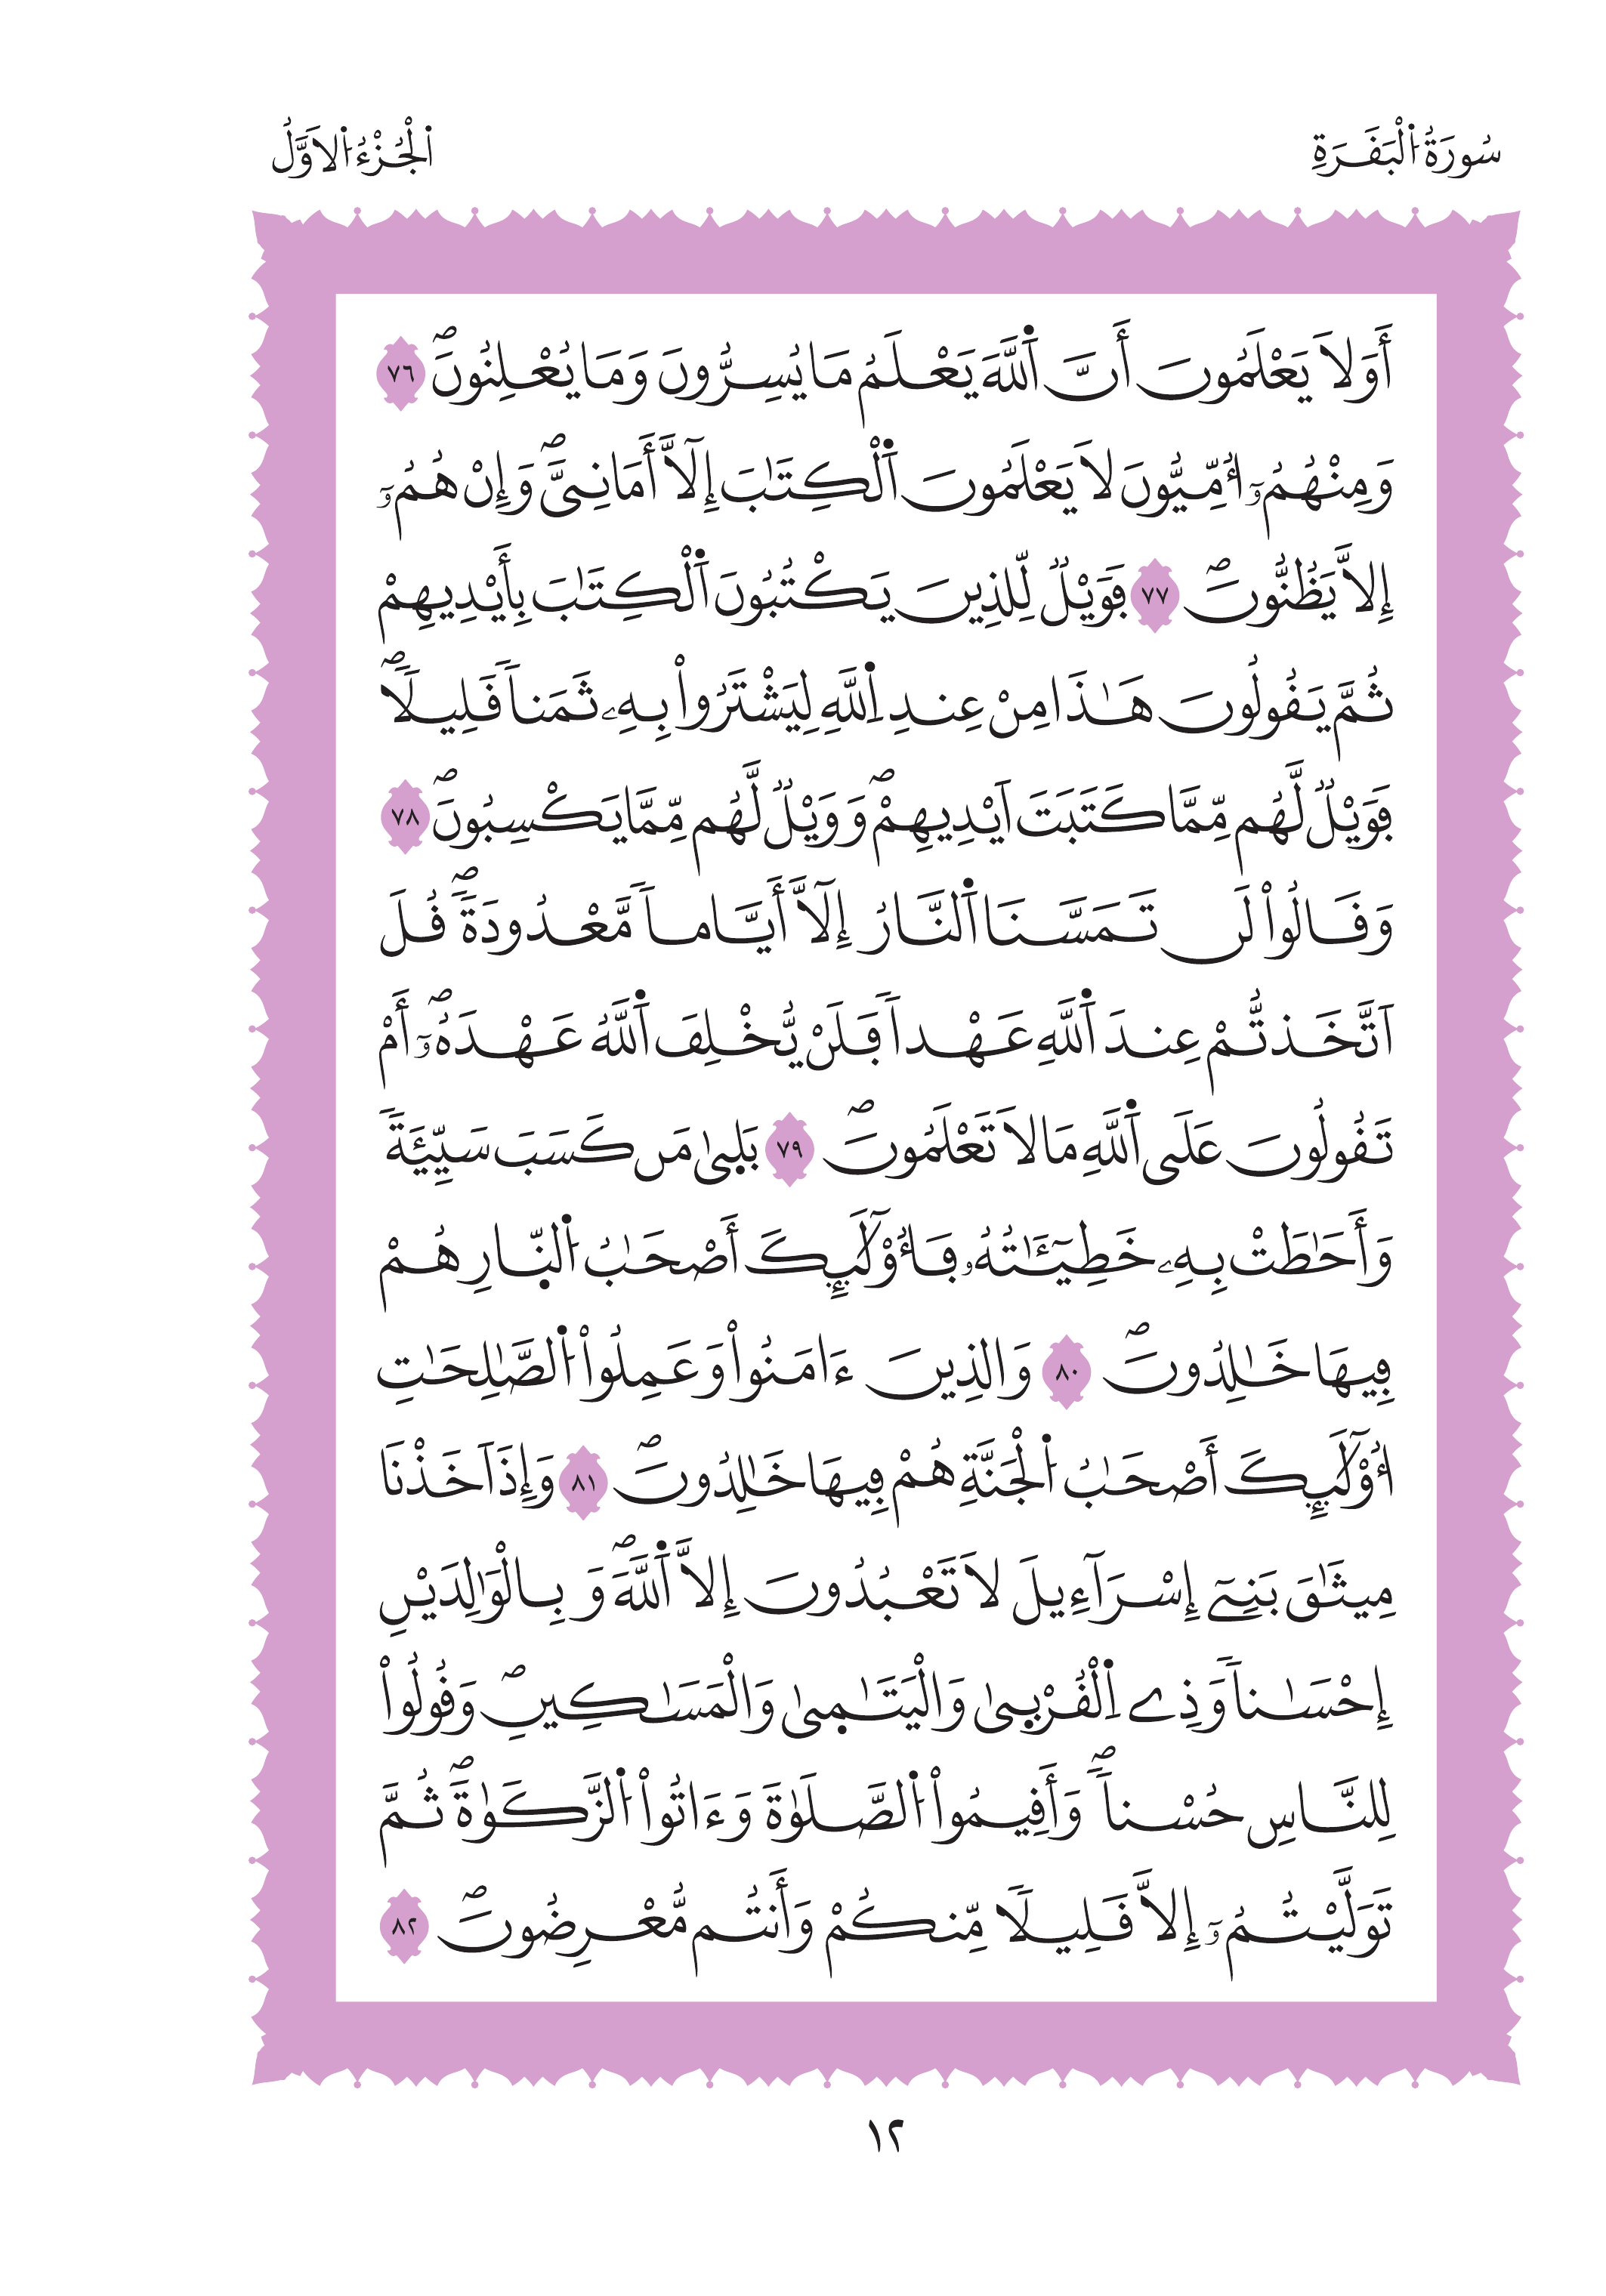 سُورَةُ اُ۬لْبَقَرَةِ
اَ۬لْجُزْءُ اُ۬لَاوَّلُ
أَوَلَا يَعْلَمُونَ أَنَّ اَ۬للَّهَ يَعْلَمُ مَا يُسِرُّونَ وَمَا يُعْلِنُونَۖ ٧٦
وَمِنْهُمُۥٓ أُمِّيُّونَ لَا يَعْلَمُونَ اَ۬لْكِتَٰبَ إِلَّآ أَمَانِيَّۖ وَإِنْ هُمُۥٓ
إِلَّا يَظُنُّونَۖ ٧٧ فَوَيْلٞ لِّلذِينَ يَكْتُبُونَ اَ۬لْكِتَٰبَ بِأَيْدِيهِمْ
ثُمَّ يَقُولُونَ هَٰذَا مِنْ عِندِ اِ۬للَّهِ لِيَشْتَرُواْ بِهِۦ ثَمَناٗ قَلِيلاٗۖ
فَوَيْلٞ لَّهُم مِّمَّا كَتَبَتَ اَيْدِيهِمْۖ وَوَيْلٞ لَّهُم مِّمَّا يَكْسِبُونَۖ ٧٨
وَقَالُواْ لَن تَمَسَّنَا اَ۬لنَّارُ إِلَّآ أَيَّاماٗ مَّعْدُودَةٗۖ قُلَ
اَتَّخَذتُّمْ عِندَ اَ۬للَّهِ عَهْداٗ فَلَنْ يُّخْلِفَ اَ۬للَّهُ عَهْدَهُۥٓۖ أَمْ
تَقُولُونَ عَلَى اَ۬للَّهِ مَا لَا تَعْلَمُونَۖ ٧٩ بَل۪ىٰ مَن كَسَبَ سَيِّئَةٗ
وَأَحَٰطَتْ بِهِۦ خَطِيٓـَٰٔتُهُۥ فَأُوْلَٰٓئِكَ أَصْحَٰبُ اُ۬لنّ۪ارِ هُمْ
فِيهَا خَٰلِدُونَۖ ٨٠ وَالذِينَ ءَامَنُواْ وَعَمِلُواْ اُ۬لصَّٰلِحَٰتِ
أُوْلَٰٓئِكَ أَصْحَٰبُ اُ۬لْجَنَّةِ هُمْ فِيهَا خَٰلِدُونَۖ ٨١ وَإِذَ اَخَذْنَا
مِيثَٰقَ بَنِيٓ إِسْرَآءِيلَ لَا تَعْبُدُونَ إِلَّا اَ۬للَّهَۖ وَبِالْوَٰلِدَيْنِ
إِحْسَٰناٗ وَذِے اِ۬لْقُرْب۪ىٰ وَالْيَتَٰم۪ىٰ وَالْمَسَٰكِينِۖ وَقُولُواْ
لِلنَّاسِ حُسْناٗۖ وَأَقِيمُواْ اُ۬لصَّلَوٰةَ وَءَاتُواْ اُ۬لزَّكَوٰةَۖ ثُمَّ
تَوَلَّيْتُمُۥٓ إِلَّا قَلِيلاٗ مِّنكُمْ وَأَنتُم مُّعْرِضُونَۖ ٨٢
١٢